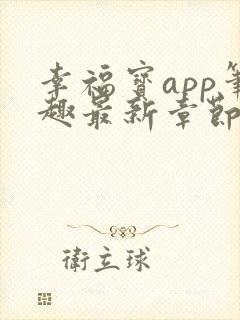 幸福寳app筆
趣最新章節
衛立球